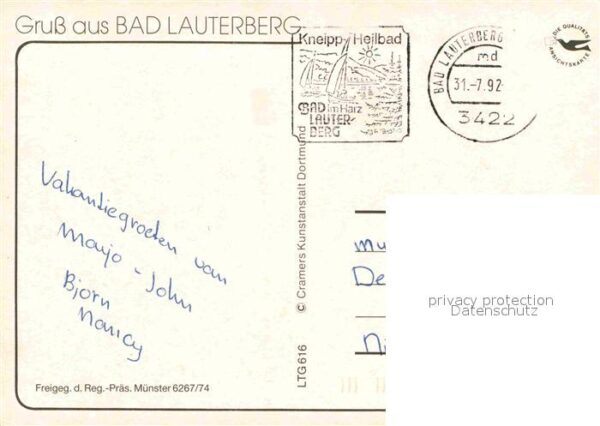 Gruß aus BAD LAUTERBERG
Kneipp-Heilbad
BAD im Harz
LAUTER-
BERG
BAD LAUTERBERG
md
31.-7.92
3422
DIE QUALITÄTS
ANSICHTSKARTE
Vakantiegroeten van
Marjo - John
Bjorn
Nancy
Freigeg. d. Reg.-Präs. Münster 6267/74
LTG 616 © Cramers Kunstanstalt Dortmund
De
privacy protection
Datenschutz